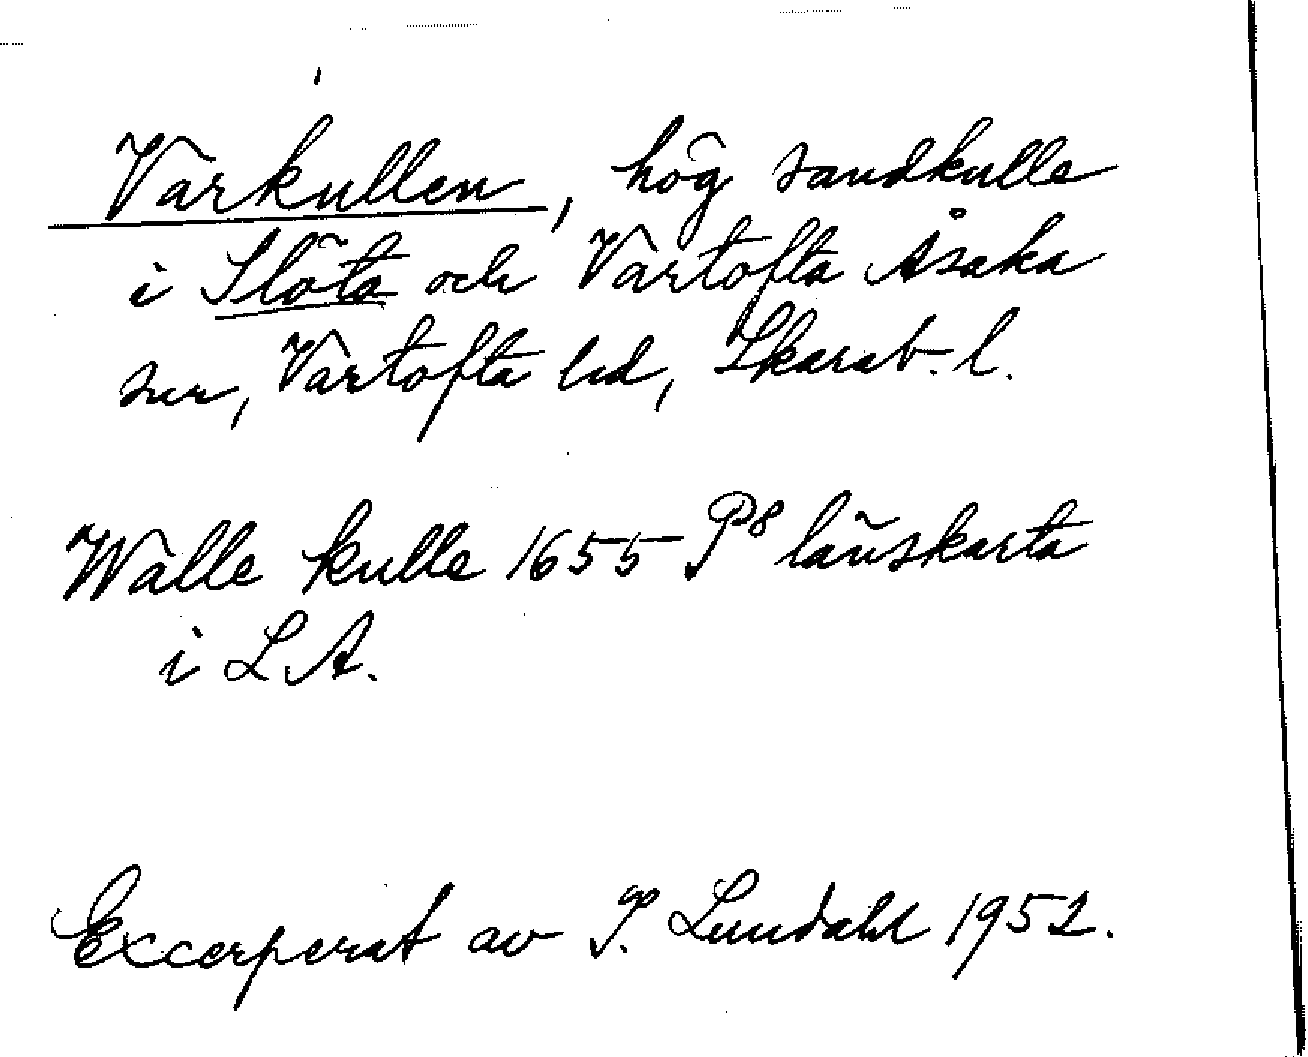 Varkullen, hög sandkulle
i Slöta och Vartofta Åsaka
snr, Vartofta hd, Skarab. l.
Walle kulle 1655 P8 länskarta
i LA.
Excerperat av I. Lundahl 1952.